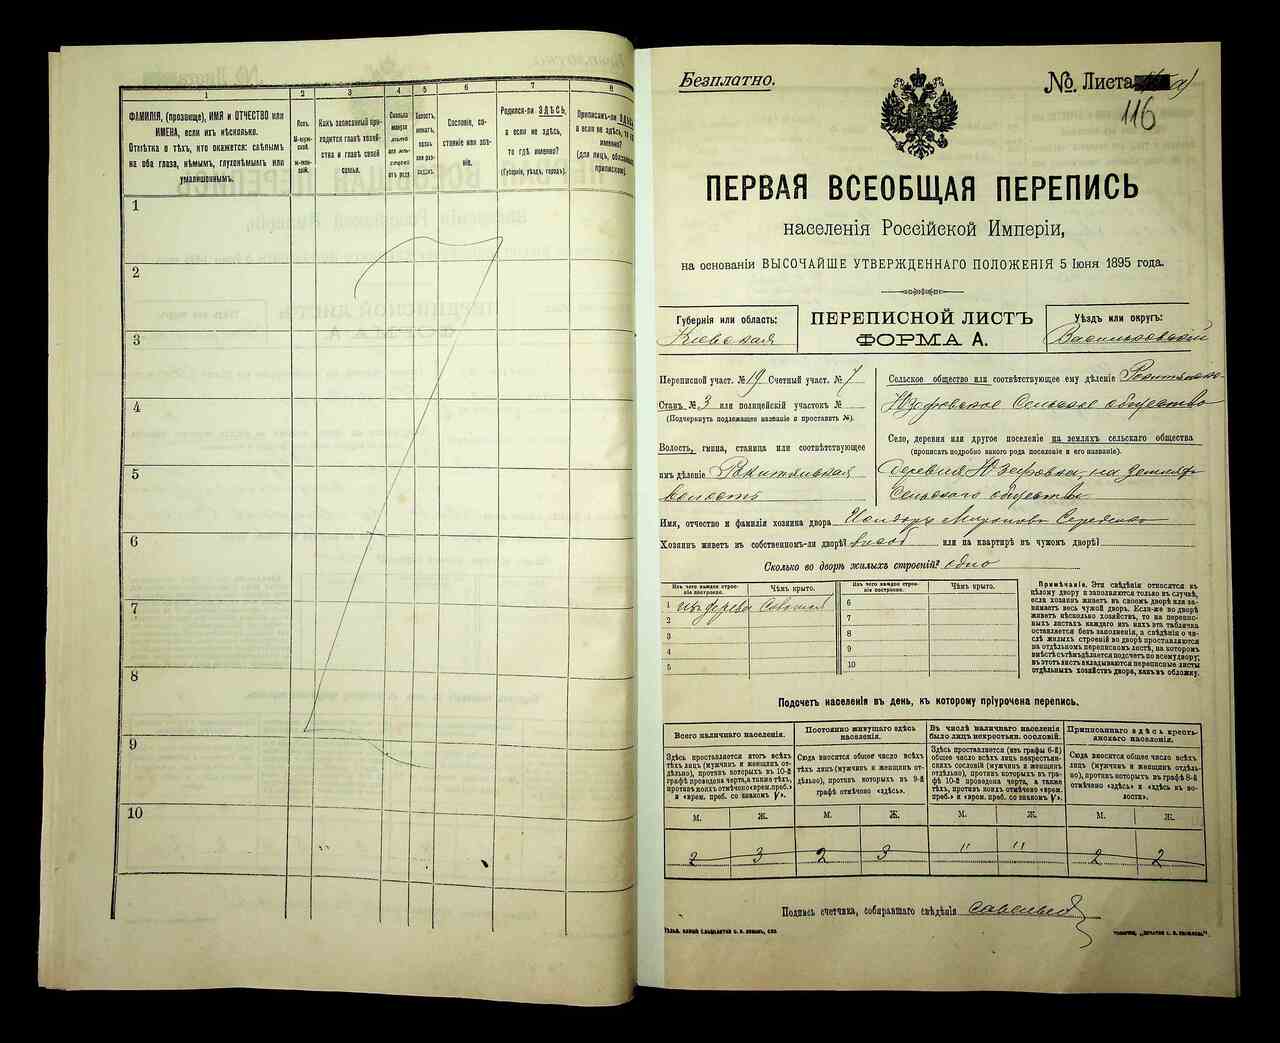 1
2
3
4
5
6
7
8
ФАМИЛІЯ, (прозвище), ИМЯ и ОТЧЕСТВО или
ИМЕНА, если ихъ нѣсколько.
Отмѣтка о тѣхъ, кто окажется: слѣпымъ
на оба глаза, нѣмымъ, глухонѣмымъ или
умалишеннымъ.
Полъ.
М-муж-
ской.
ж-жен-
скій.
Какъ записанный при-
ходится главѣ хозяй-
ства и главѣ своей
семьи.
Сколько
минуло
лѣтъ
или мѣ-
сяцевъ
отъ роду
Сословіе, со-
стояніе или зва-
ніе.
Родился-ли ЗДѢСЬ,
а если не здѣсь,
то гдѣ именно?
(Губернія, уѣздъ, городъ).
Приписанъ-ли ЗДѢСЬ
а если не здѣсь, то гдѣ
именно?
(для лицъ, обязанныхъ
припискою).
1
2
3
4
5
6
7
8
9
10
Безплатно.
№. Листа
116
ПЕРВАЯ ВСЕОБЩАЯ ПЕРЕПИСЬ
населенія Россійской Имперіи,
на основаніи ВЫСОЧАЙШЕ УТВЕРЖДЕННАГО ПОЛОЖЕНІЯ 5 Іюня 1895 года.
Губернія или область:
Кіевская
ПЕРЕПИСНОЙ ЛИСТЪ
ФОРМА А.
Уѣздъ или округъ:
Васильковскій
Переписной участ. № 19 Счетный участ. № 7
Станъ № 3 или полицейскій участокъ №
(Подчеркнуть подлежащее названіе и проставить №).
Волость, гмина, станица или соотвѣтствующее
имъ дѣленіе Ракитянская
волость
Сельское общество или соотвѣтствующее ему дѣленіе Ракитянско-
Юзефовское Сельское общество
Село, деревня или другое поселеніе на земляхъ сельскаго общества
(прописать подробно какого рода поселеніе и его названіе).
деревня Юзефовка, на земляхъ
Сельскаго общества
Имя, отчество и фамилія хозяина двора Исидоръ Мироновъ Середенко
Хозяинъ живетъ въ собственномъ-ли дворѣ? или на квартирѣ въ чужомъ дворѣ?
Сколько во дворѣ жилыхъ строеній? одно
Изъ чего каждое строе-
ніе построено.
Чѣмъ крыто.
Изъ чего каждое строе-
ніе построено.
Чѣмъ крыто.
1 изъ дерева Соломой
2
3
4
5
6
7
8
9
10
Примѣчаніе. Эти свѣдѣнія относятся къ
цѣлому двору и заполняются только въ случаѣ,
если хозяинъ живетъ въ своемъ дворѣ или за-
нимаетъ весь чужой дворъ. Если-же во дворѣ
живетъ нѣсколько хозяйствъ, то на перепис-
ныхъ листахъ каждаго изъ нихъ эта табличка
оставляется безъ заполненія, а свѣдѣнія о чи-
слѣ жилыхъ строеній во дворѣ проставляются
на отдѣльномъ переписномъ листѣ, на которомъ
вмѣстѣ съ тѣмъ дѣлается подсчетъ по всему двору;
въ этотъ листъ вкладываются переписные листы
отдѣльныхъ хозяйствъ двора, какъ въ обложку.
Подсчетъ населенія въ день, къ которому пріурочена перепись.
Всего наличнаго населенія.
Здѣсь проставляется итогъ всѣхъ
тѣхъ лицъ (мужчинъ и женщинъ от-
дѣльно), противъ которыхъ въ 10-й
графѣ проведена черта, а также тѣхъ,
противъ коихъ отмѣчено «врем. преб.»
и «врем. преб. со знакомъ V».
Постоянно живущаго здѣсь
населенія.
Сюда вносится общее число всѣхъ
тѣхъ лицъ (мужчинъ и женщинъ от-
дѣльно), противъ которыхъ въ 9-й
графѣ отмѣчено «здѣсь».
Въ числѣ наличнаго населенія
было лицъ некрестьян. сословій.
Здѣсь проставляется (изъ графы 6-й)
общее число всѣхъ лицъ некрестьян-
скихъ сословій (мужчинъ и женщинъ
отдѣльно), противъ которыхъ въ гра-
фѣ 10-й проведена черта, а также
тѣхъ, противъ коихъ отмѣчено «врем.
преб.» и «врем. преб. со знакомъ V».
Приписаннаго здѣсь кресть-
янскаго населенія.
Сюда вносится общее число всѣхъ
лицъ (мужчинъ и женщинъ отдѣль-
но), противъ которыхъ въ графѣ 8-й
отмѣчено «здѣсь» и «здѣсь въ во-
лости».
М. Ж. М. Ж. М. Ж. М. Ж.
2 3 2 3 " " 2 2
Подпись счетчика, собиравшаго свѣдѣнія